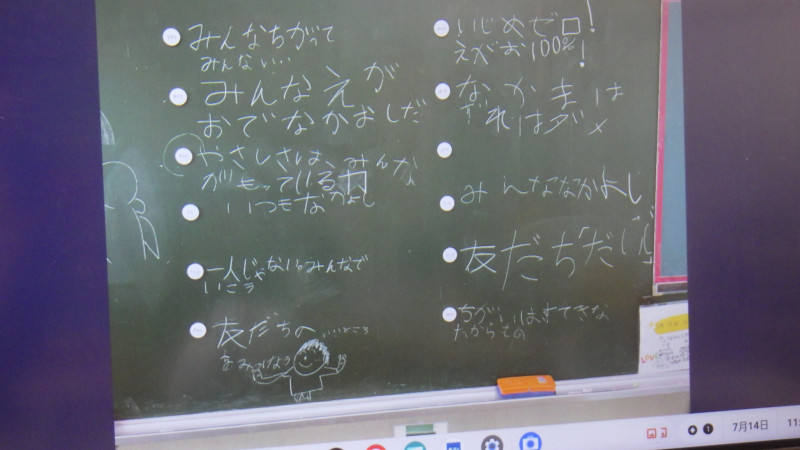 みんなちがって
みんないい
みんなえが
おでなかよしだ
やさしさは、みんな
がもっている力
いつもなかよし
一人じゃない。みんなで
いこう
友だちの
いいところ
をみつけよう
いじめゼロ!
えがお100%!
なかまは
ずれはダメ
みんななかよし
友だち「だいじ」
ちがいはすてきな
たからもの
7月14日